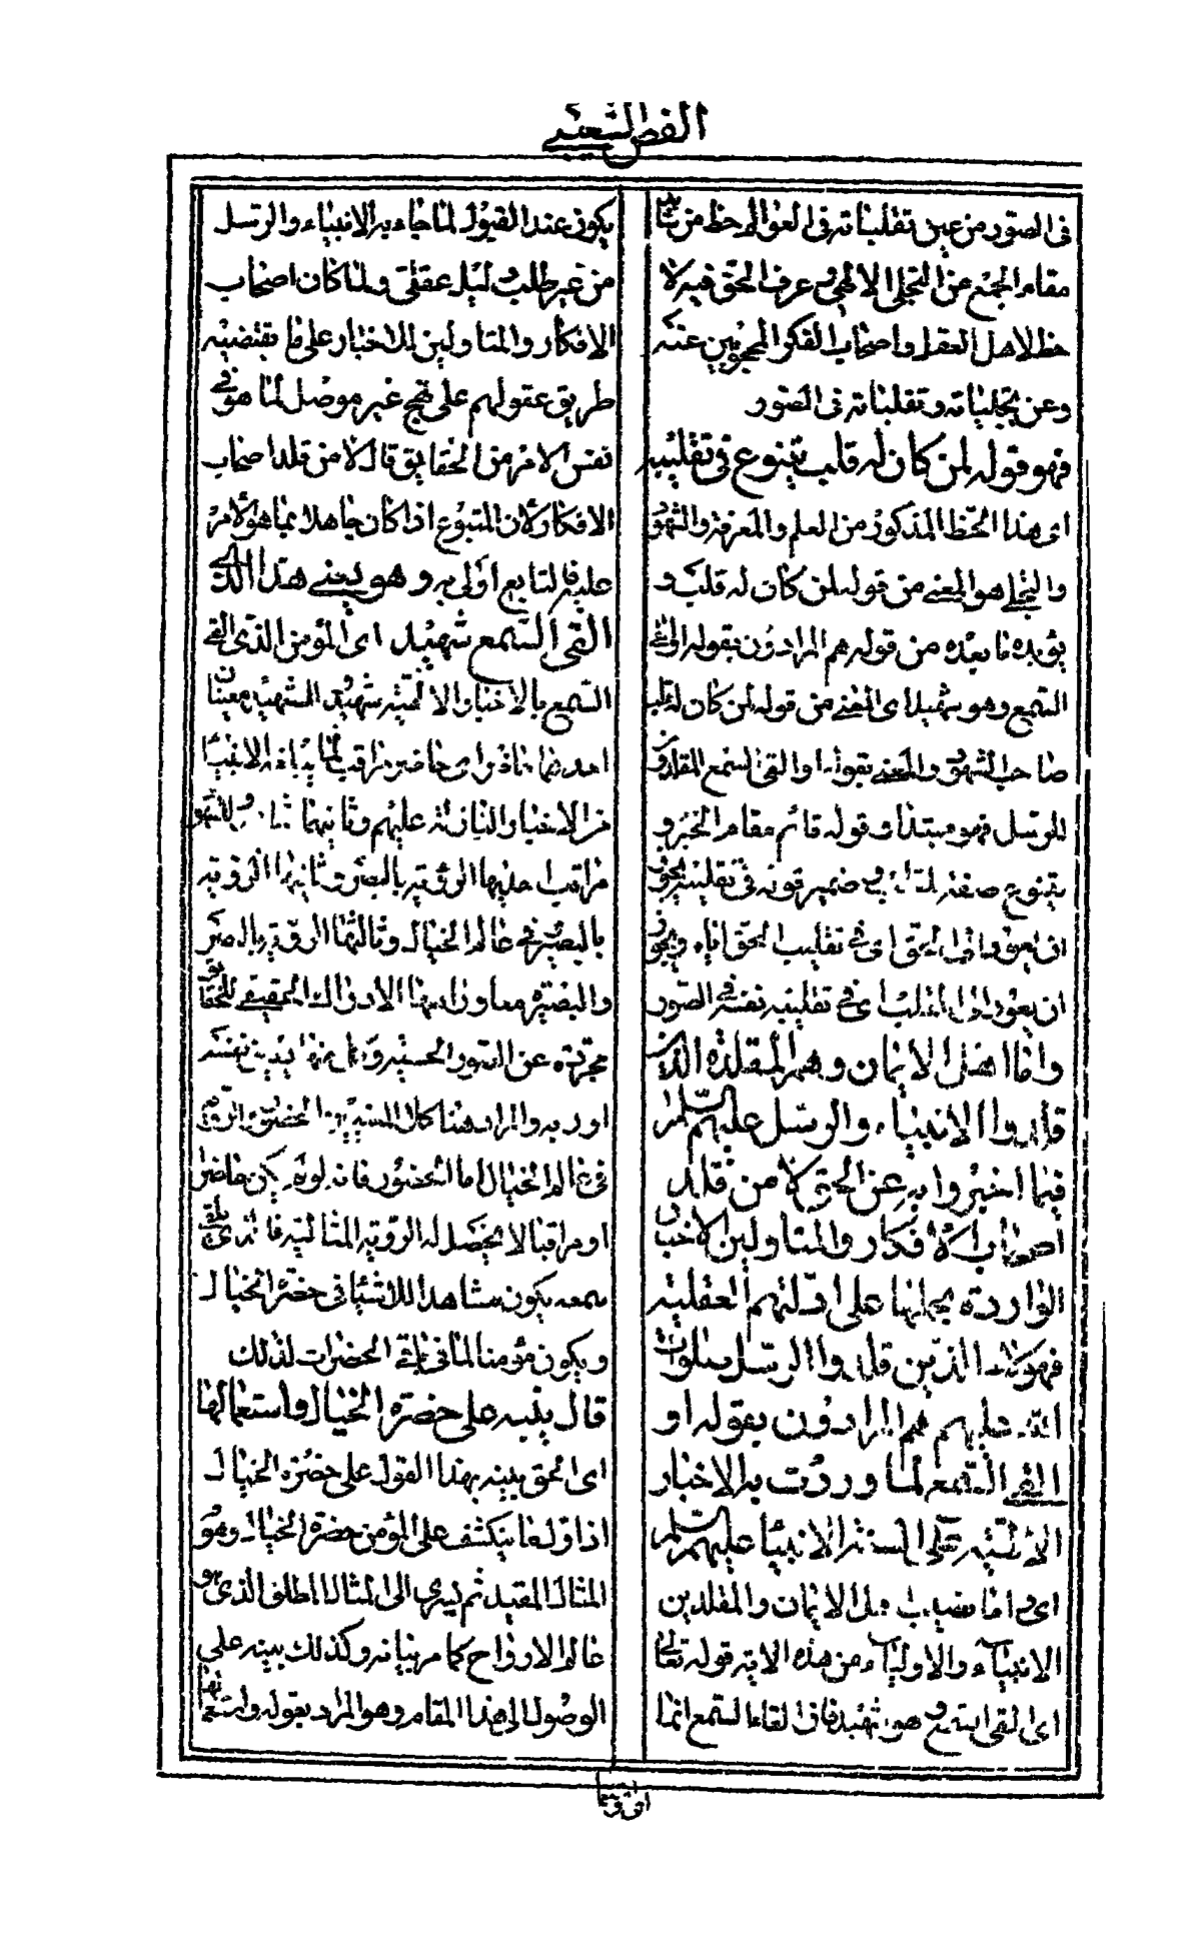 الفص الشعيبي
فى الصور من عين تقلباته فى العوالم حظ من شاهد
مقام الجمع من التجلى الالهى و عرف الحق فيه لا
حظ لاهل العقل واصحاب الفكر المحجوبين عنه
وعن تجلياته وتقلباته فى الصور
فهو قوله لمن كان له قلب يتنوع فى تقليبه
اى هذا الحظ المذكور من العلم والمعرفة والشهود
والتجلى هو المعنى من قوله لمن كان له قلب و
يؤيده ما بعده من قوله هم المرادون بقوله او القى
السمع وهو شهيد اى المعنى من قوله لمن كان له قلب
صاحب الشهود والمعنى بقوله او القى السمع المقلدون
للرسل فهو مبتدا و قوله قائم مقام الخبر و
يتنوع صفة لقلب و ضمير قوله فى تقليبه يجوز
ان يعود الى الحق اى فى تقليب الحق اياه ويجوز
ان يعود الى القلب اى فى تقليبه نفسه فى الصور
واما اهل الايمان وهم المقلدة الذين
قلدوا الانبياء والرسل عليهم السلام
فيما اخبروا به عن الحق لا من قلد
اصحاب الافكار والمتاولين الاخبار
الواردة بحملها على ادلتهم العقلية
فهولاء الذين قلدوا الرسل صلوات
الله عليهم هم المرادون بقوله او
القى السمع لما وردت به الاخبار
الالهية على السنة الانبيا عليهم السلام
اى و اما نصيب اهل الايمان والمقلدين
الانبياء والاولياء من هذه الاية قوله تعالى
او القى السمع و هو شهيد فان القاء السمع انما
يكون عند القبول لما جاء به الانبياء والرسل
من غير طلب دليل عقلى ولما كان اصحاب
الافكار والمتاولين للاخبار على ما يقتضيه
طريق عقولهم على نهج غير موصل لما هو فى
نفس الامر من الحقايق قال لا من قلد اصحاب
الافكار لان المتبوع اذا كان جاهلا بما هو الامر
عليه فالتابع اولى به وهو يعنى هذا الذى
القى السمع شهيد اى المؤمن الذى القى
السمع بالاخبار الالهية شهيد للشهيد معينان
احدهما حاضر اى حاضر مراقب لما يرد به الانبيا
من الاخبار النازلة عليهم وثانيهما شاهد وللشهود
مراتب احديها الرؤية بالبصر وثانيها الرؤية
بالبصر فى عالم الخيال وثالثها الرؤية بالبصر
والبصيرة معا ورابعها الادراك الحقيقى للحقائق
مجردة عن الصور الحسية و
اوربه والمراد هنا
فى عالم الخيال اما الحضور فانه لو لم يكن حاضرا
او مراقبا لا يحصل له الرؤية المثالية فالذى يلقى
سمعه يكون مشاهدا للاشيا فى حضرة الخيال
ويكون مؤمنا لما فى باقى الحضرات لذلك
قال ينبه على حضرة الخيال واستعمالها
اى الحق ينبه بهذا القول على حضرة الخيال
اذ اول ما ينكشف على المؤمن حضرة الخيال وهو
المثال المقيد ثم يسرى الى المثال المطلق الذى هو
عالم الارواح كما مر بيانه وكذلك ينبه على
الوصول الى هذا المقام وهو المراد بقوله واستعمالها